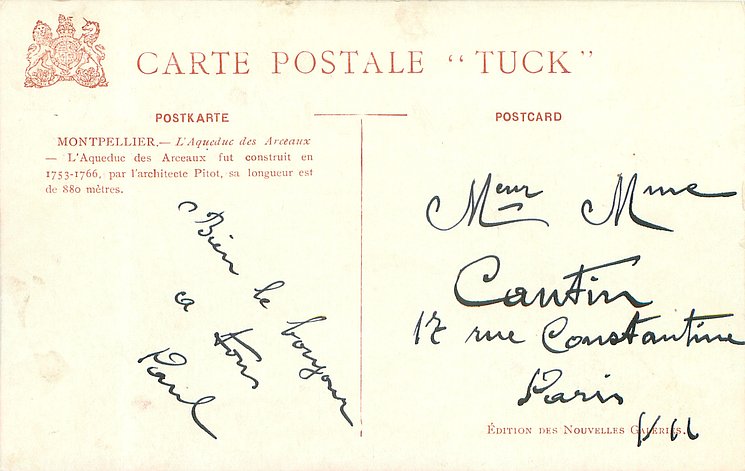 CARTE POSTALE "TUCK"
POSTKARTE
POSTCARD
MONTPELLIER.— L'Aqueduc des Arceaux
— L'Aqueduc des Arceaux fut construit en
1753-1766, par l'architecte Pitot, sa longueur est
de 880 mètres.
Bien le bonjour
a tous
Paul
Meur Mme
Cantin
17 rue Constantine
Paris
ÉDITION DES NOUVELLES GALERIES.